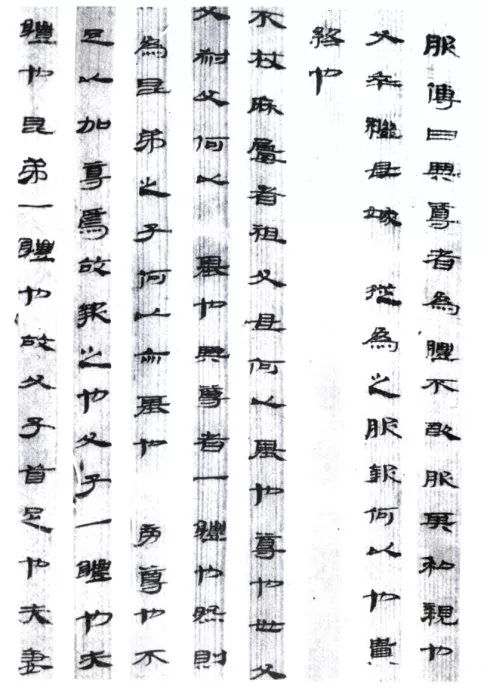 服傳曰與尊者為體不敢服其私親也
父卒繼母嫁從為之服報何以也貴
終也
不杖麻屨者祖父母何以基也尊也世父
父叔父何以基也與尊者一體也然則
為昆弟之子何以亦基也旁尊也不
足以加尊焉故報之也父子一體也夫
體也昆弟一體也故父子首足也夫妻